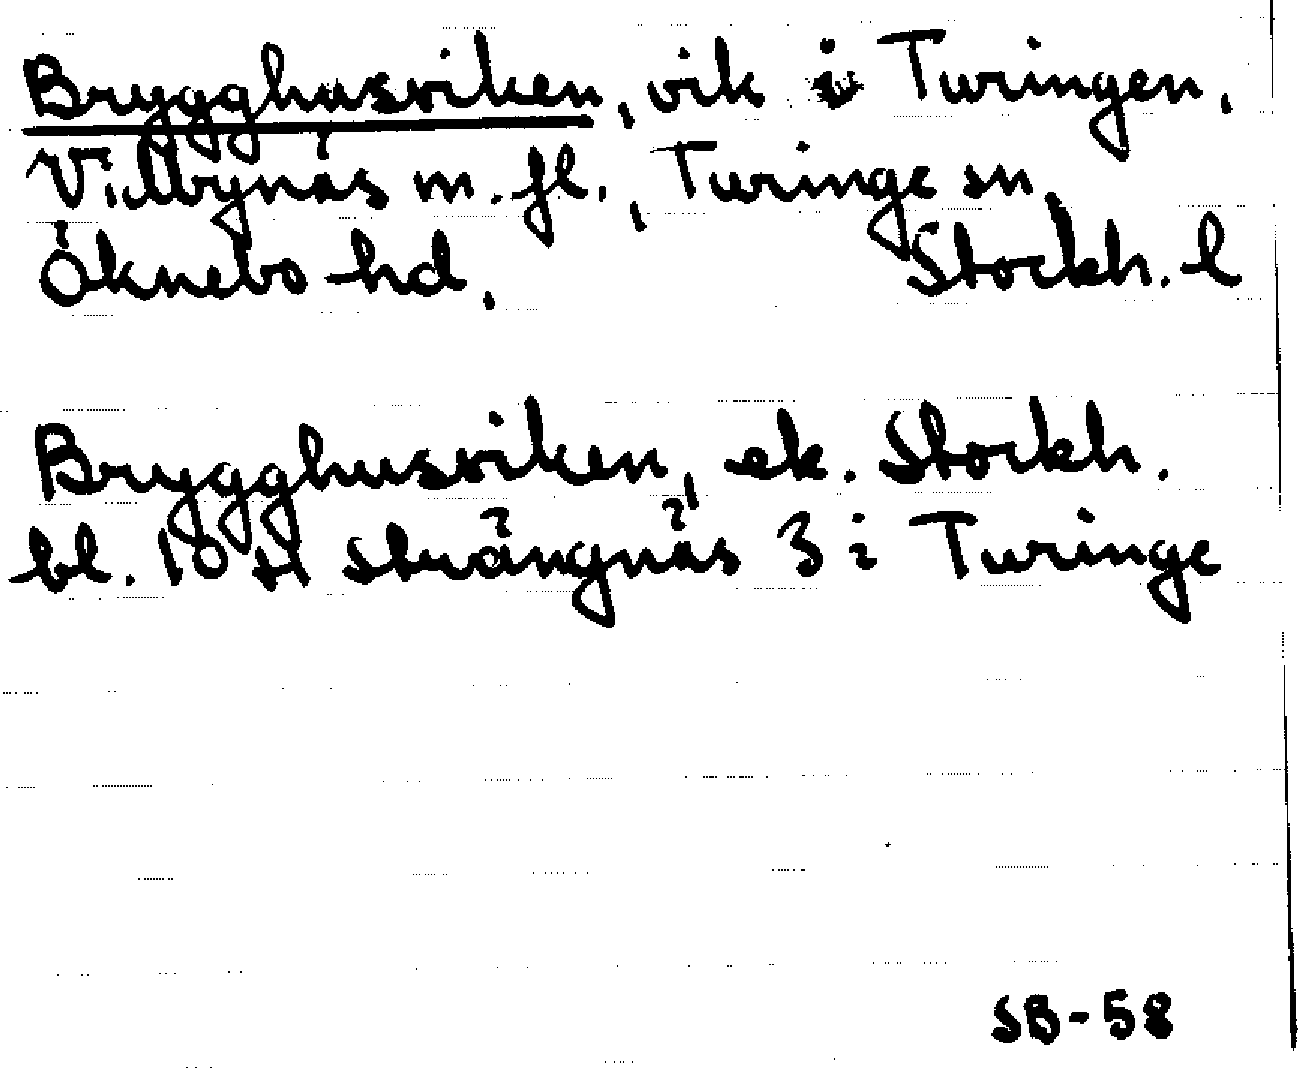 Brygghusviken, vik i Turingen,
Villbynäs m. fl., Turinge sn
Öknebo hd, Stockh. l
Brygghusviken, ek. Stockh.
bl. 10 H Strängnäs 3 i Turinge
SB-58